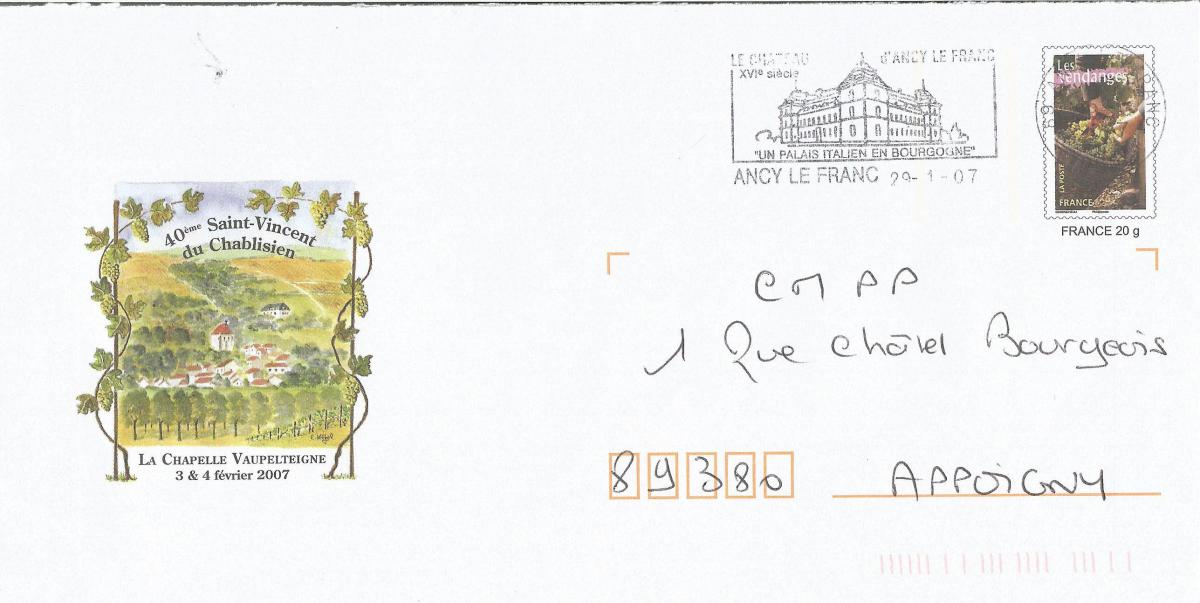 LE CHATEAU d'ANCY LE FRANC
XVIe siècle
"UN PALAIS ITALIEN EN BOURGOGNE"
ANCY LE FRANC 29-1-07
Les vendanges
LA POSTE
FRANCE
FRANCE 20 g
40ème Saint-Vincent
du Chablisien
LA CHAPELLE VAUPELTEIGNE
3 & 4 février 2007
CMPP
1 Rue Châtel Bourgeois
89380 APPOIGNY